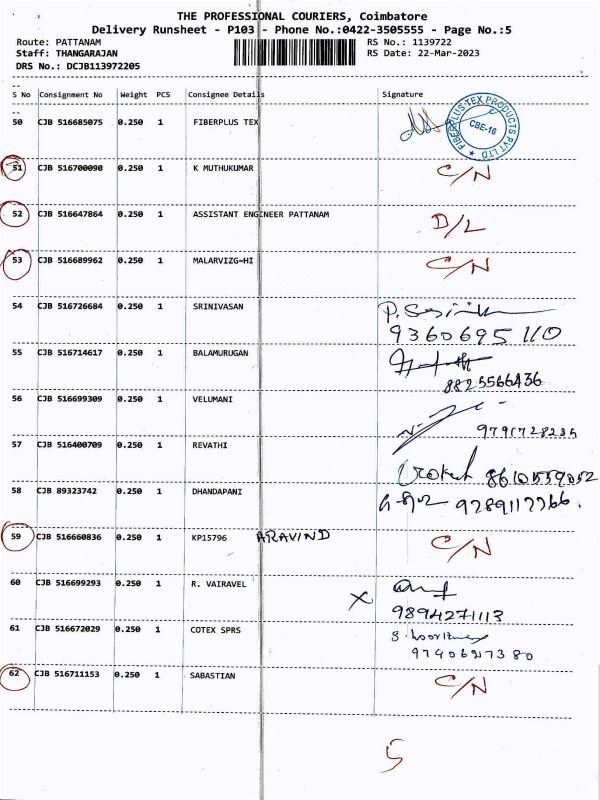 THE PROFESSIONAL COURIERS, Coimbatore
Delivery Runsheet - P103 - Phone No.:0422-3505555 - Page No.:5
Route: PATTANAM RS No.: 1139722
Staff: THANGARAJAN RS Date: 22-Mar-2023
DRS No.: DCJB113972205
S No Consignment No Weight PCS Consignee Details Signature
50 CJB 516685075 0.250 1 FIBERPLUS TEX
FIBERPLUS TEX PRODUCTS PVT LTD
CBE-16
51 CJB 516700090 0.250 1 K MUTHUKUMAR C/N
52 CJB 516647864 0.250 1 ASSISTANT ENGINEER PATTANAM D/L
53 CJB 516689962 0.250 1 MALARVIZG=HI C/N
54 CJB 516726684 0.250 1 SRINIVASAN
9360695110
55 CJB 516714617 0.250 1 BALAMURUGAN
8825566436
56 CJB 516699309 0.250 1 VELUMANI
9791728235
57 CJB 516400709 0.250 1 REVATHI 8610559052
58 CJB 89323742 0.250 1 DHANDAPANI 9789117766.
59 CJB 516660836 0.250 1 KP15796 ARAVIND C/N
60 CJB 516699293 0.250 1 R. VAIRAVEL X
9894271113
61 CJB 516672029 0.250 1 COTEX SPRS
62 CJB 516711153 0.250 1 SABASTIAN C/N
5